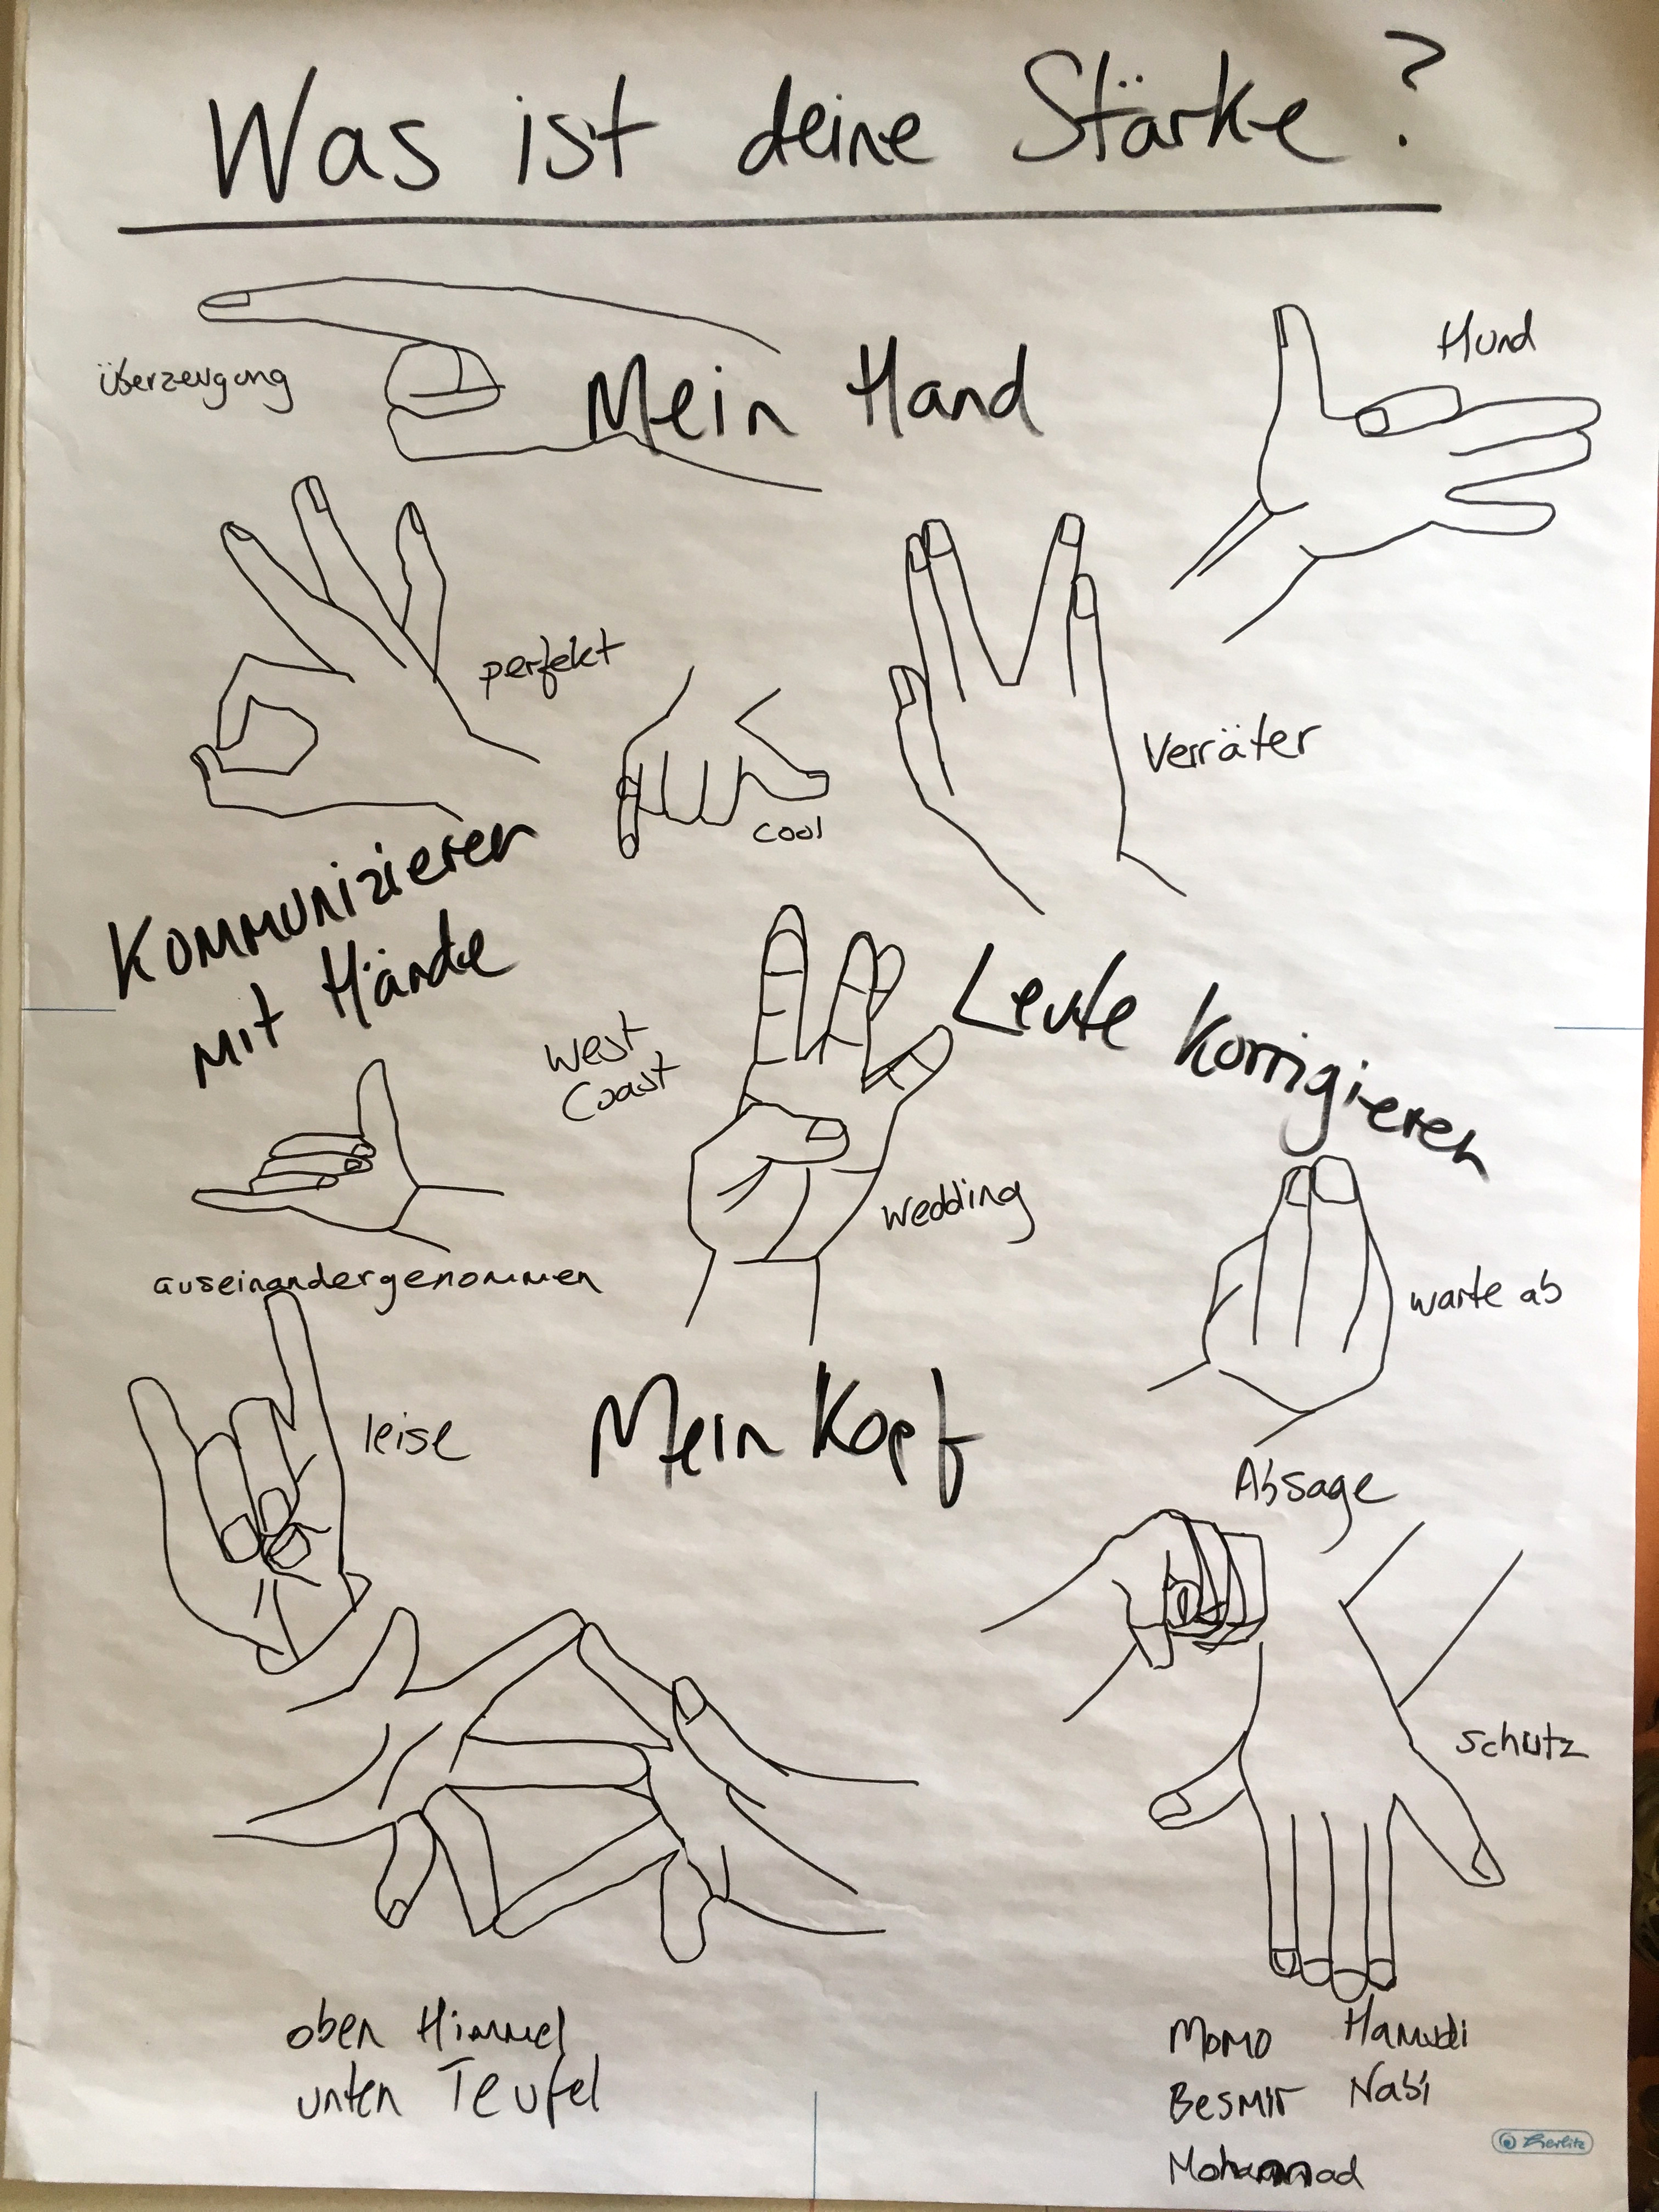 Was ist deine Stärke?
Mein Hand
Hund
überzeugung
perfekt
cool
Verräter
Kommunizieren
mit Hände
West
Coast
Leute Korrigieren
wedding
auseinandergenommen
warte ab
leise
Mein Kopf
Absage
schutz
oben Himmel
unten Teufel
Momo Hamudi
Besmir Nabi
Mohammad
Herlitz